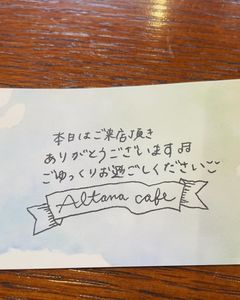 本日はご来店頂き
ありがとうございます♫
ごゆっくりお過ごしください
Altana cafe